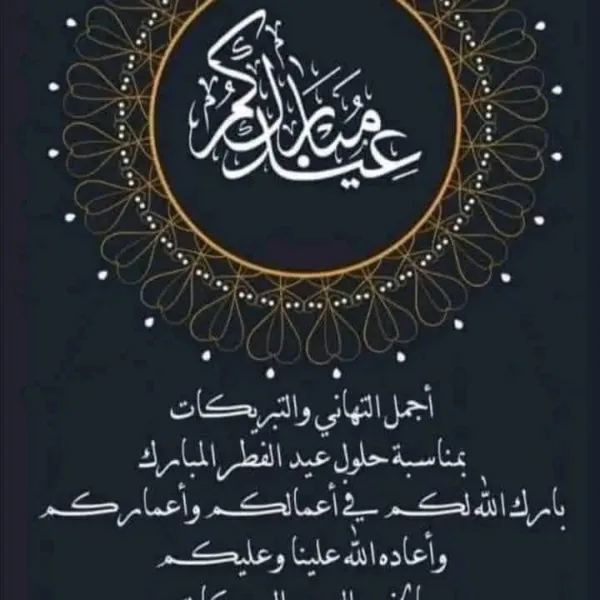 عيد مبارككم
أجمل التهاني والتبريكات
بمناسبة حلول عيد الفطر المبارك
بارك الله لكم في أعمالكم وأعماركم
وأعاده الله علينا وعليكم